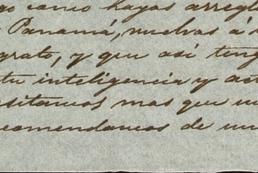 go como hayas arregl
Panamá, muchas á
grato, y que así ten
tu inteligencia y act
sitamos mas que u
comendamos de un